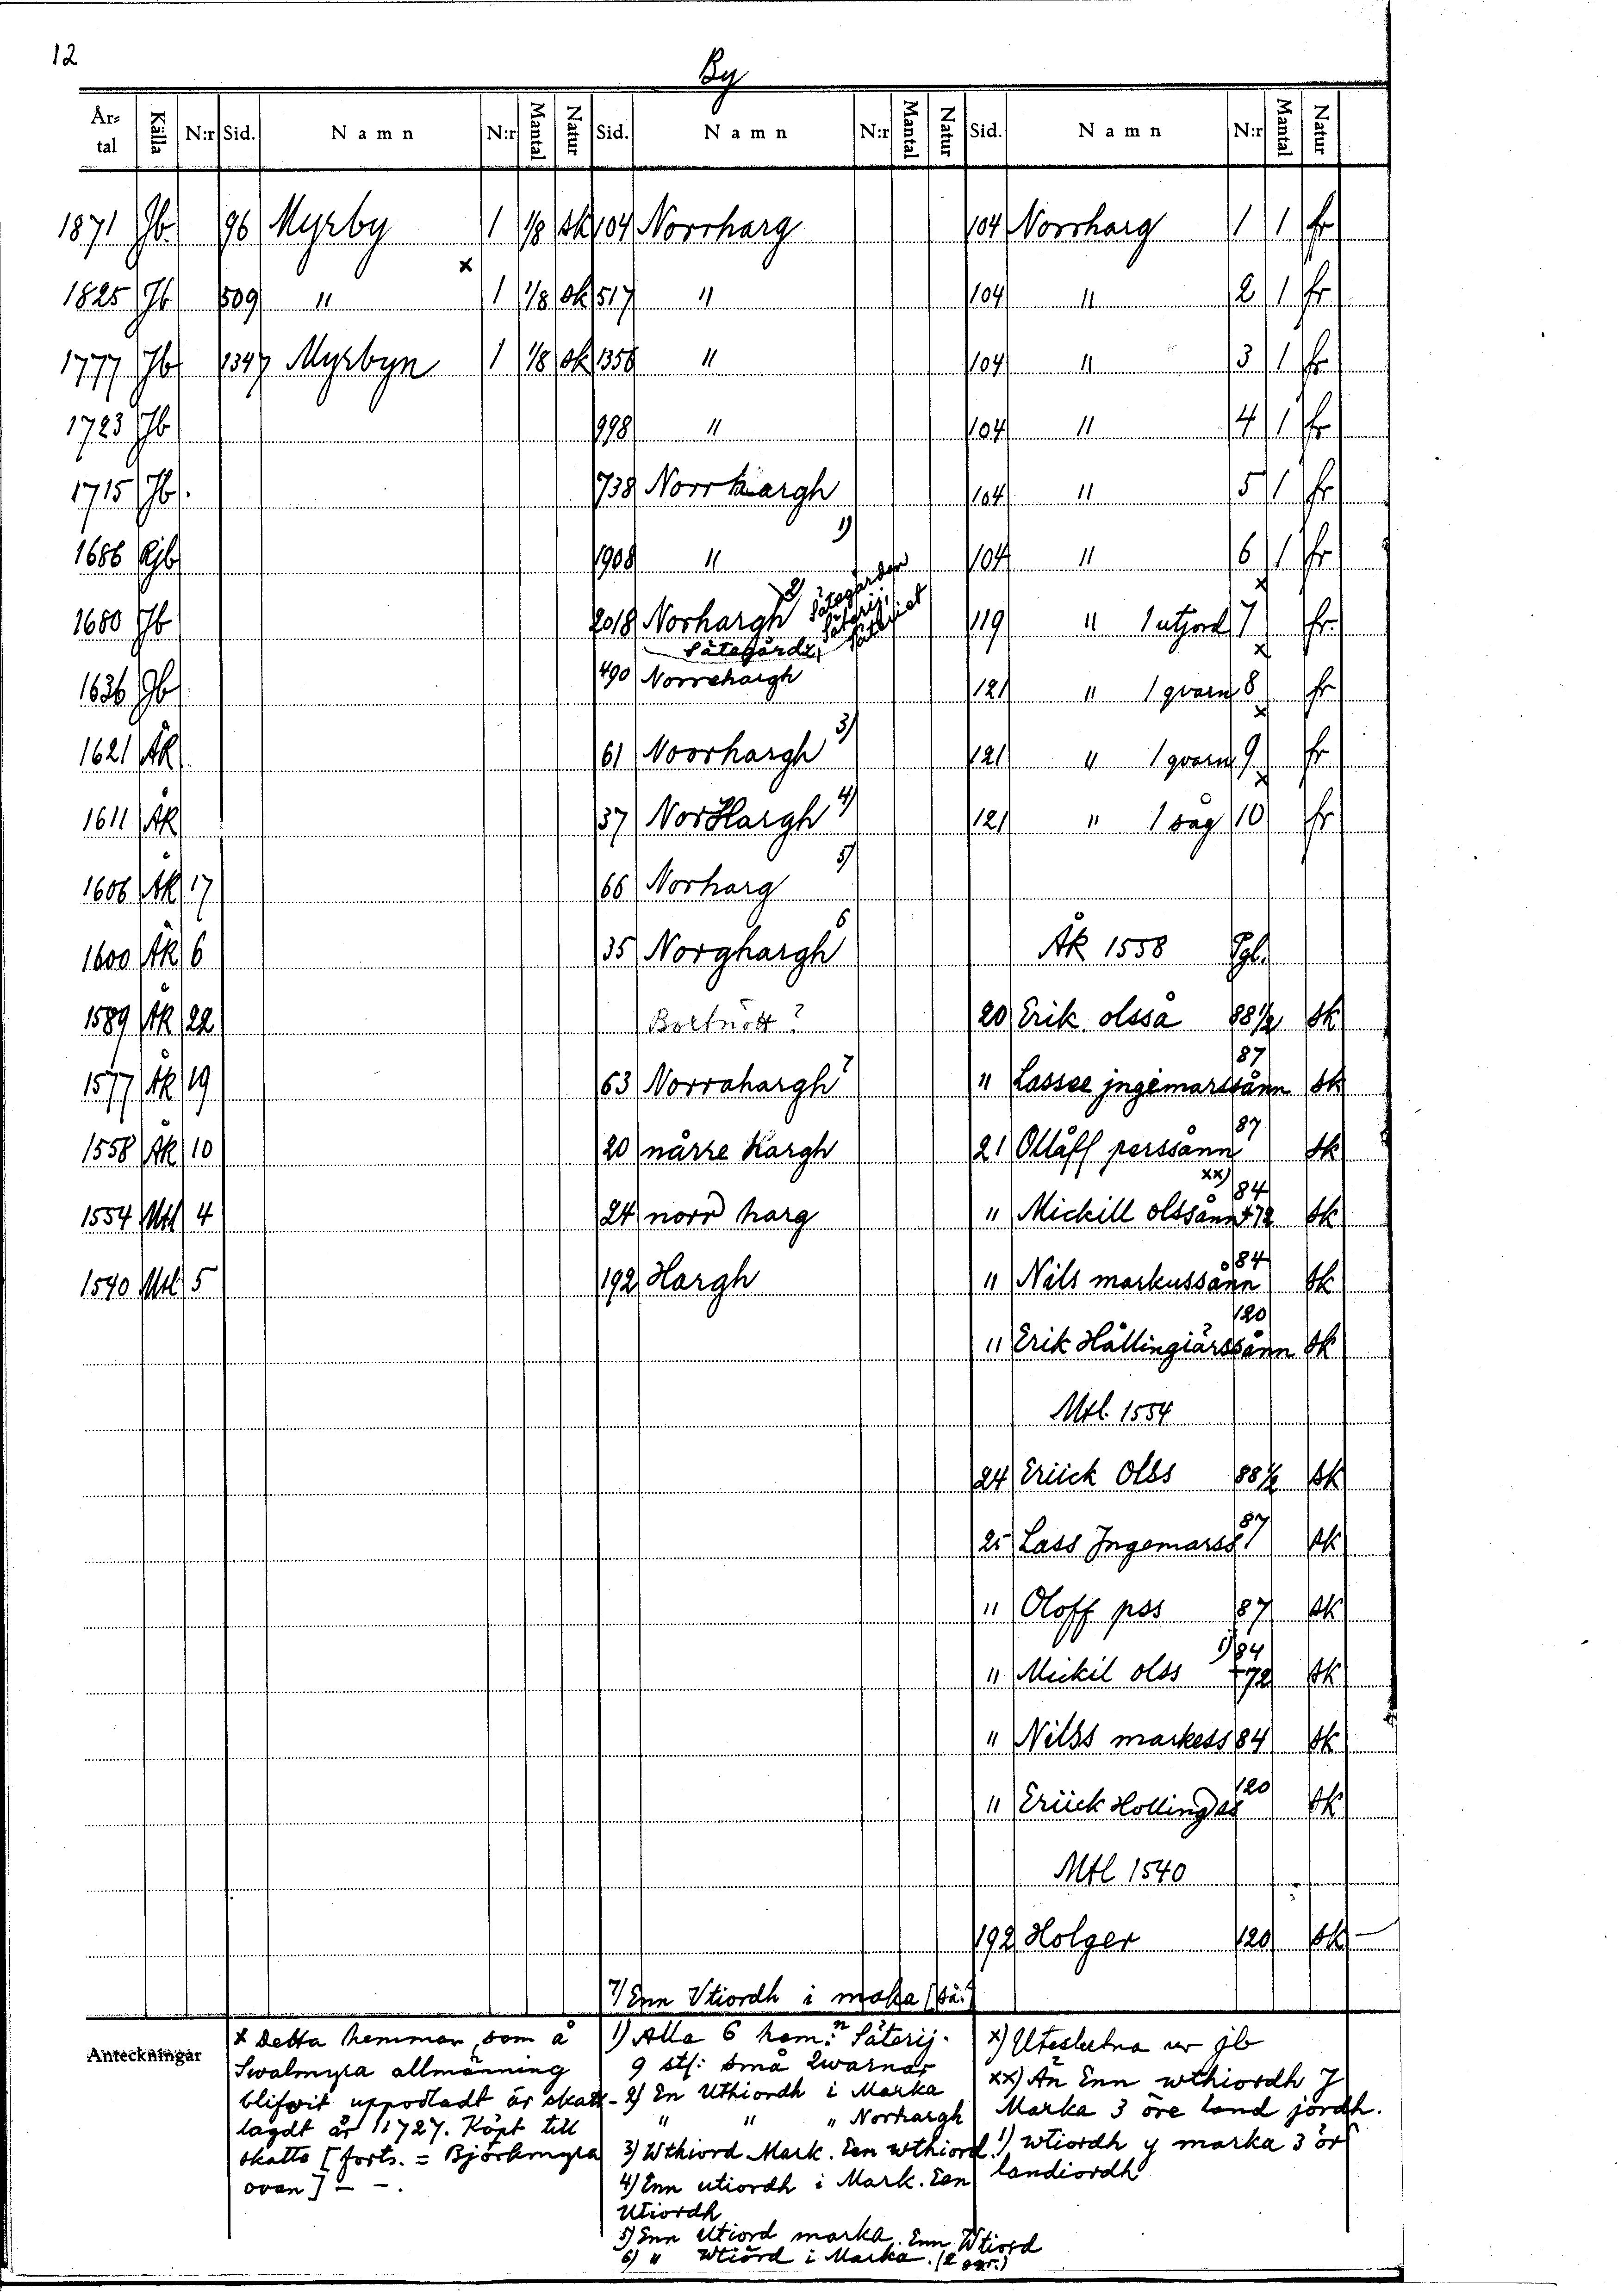 12
By
Årtal Källa N:r Sid. Namn N:r Mantal Natur Sid. Namn N:r Mantal Natur Sid. Namn N:r Mantal Natur
1871 Jb. 96 Myrby 1 1/8 sk 104 Norrharg 104 Norrharg 1 1 fr
1825 Jb 509 " x 1 1/8 sk 517 " 104 " 2 1 fr
1777 Jb 1347 Myrbyn 1 1/8 sk 1356 " 104 " 3 1 fr
1723 Jb 998 " 104 " 4 1 fr
1715 Jb. 738 Norrhargh 104 " 5 1 fr
1686 Rjb 1908 " 1) 104 " 6 1 fr
1680 Jb 2018 Norhargh 2) Sätegården Säterij, Säteriet 119 " 1 utjord 7 x fr.
Sätegårdz,
1636 Jb 490 Norrehargh 121 " 1 qvarn 8 x fr
1621 Äk 61 Noorhargh 3) 121 " 1 qvarn 9 x fr
1611 Åk 37 NorHargh 4) 121 " 1 såg 10 x fr
1606 Åk 17 66 Norharg 5)
1600 Åk 6 35 Norghargh 6 Åk 1558 Pgl.
1589 Åk 22 Bortnött? 20 Erik olsså 88 1/2 sk
1577 Åk 19 63 Norrahargh 7 " Lassee jngemarssånn 87 sk
1558 Åk 10 20 nårre Hargh 21 Ollåff perssånn 87 sk
1554 Mtl 4 24 norr harg " Mickill olssånn xx) 84 +72 sk
1540 Mtl 5 192 Hargh " Nils markussånn 84 sk
" Erik Hållingiärssånn 120 sk
Mtl. 1554
24 Eriick Olss 88 1/2 sk
25 Lass Jngemarss 87 sk
" Oloff pss 87 sk
" Mickil olss 1) 84 +72 sk
" Nilss markess 84 sk
" Eriick Hollingss 120 sk
Mtl 1540
192 Holger 120 sk
7) Enn Vtiordh i maka [så!]
Anteckningar
x Detta hemman, som å
Swalmyra allmänning
blifvit uppodladt är skatt-
lagdt år 1727. Köpt till
skatte [forts. = Björkmyra
ovan] - -.
1) Alla 6 hem:n Säterij.
9 st: små Qwarnar
2) En Uthiordh i Marka
" " " Norhargh
3) Wthiord Mark. Een wthiord.
4) Enn utiordh i Mark. Een
Utiordh
5) Enn Utiord marka. Enn Wtiord
6) " Wtiörd i Marka. (2 ggr.)
x) Uteslutna ur jb
xx) Än Enn wthiordh J
Marka 3 öre land jördh.
1) wtiordh y marka 3 ör
landiordh